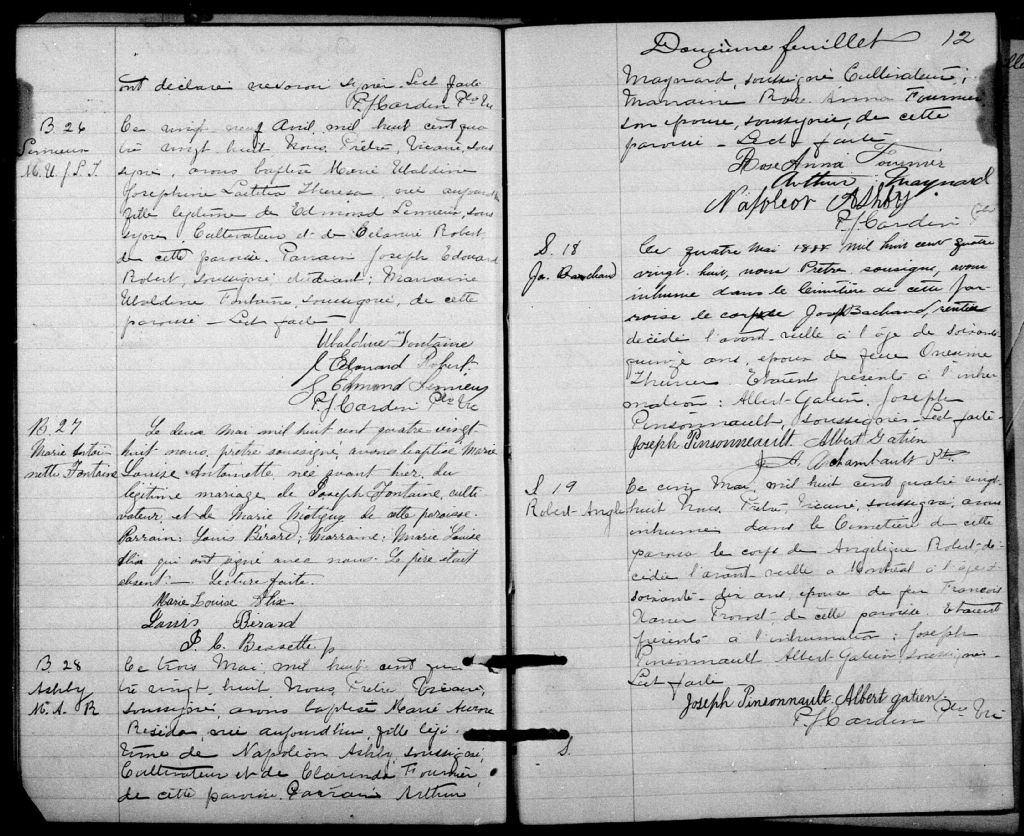 ont déclaré ne savoir signer. Lect. faite
P. J. Cardin Ptre Vic
B 26
Lemieux
M. U. J. L. T.
Ce vingt neuf Avril, mil huit cent qua
tre vingt huit Nous, Prêtre, Vicaire, sous
signé, avons baptisé Marie Ubaldine
Josephine Laëtitia Theresa, née aujourd'h
fille légitime de Edmond Lemieux, sous
signé, Cultivateur et de Robert
de cette paroisse. Parrain Joseph Edouard
Robert, soussigné, étudiant; Marraine
Ubaldine Fontaine soussignée, de cette
paroisse — Lect. faite
Ubaldine Fontaine
J. Edouard Robert
J. Edmond Lemieux
P. J. Cardin Ptre Vic
B 27
Marie Antoi-
nette Fontaine
Le deux Mai mil huit cent quatre vingt
huit nous, prêtre soussigné, avons baptisé Marie
Louise Antoinette née avant hier, du
légitime mariage de Joseph Fontaine, culti
vateur, et de Marie de cette paroisse.
Parrain: Louis Bérard; Marraine: Marie Louise
qui ont signé avec nous. Le père était
absent. — Lecture faite.
Marie Louise
Louis Bérard
J. C. Bessette p
B 28
Ashby
M. A. R
Ce trois Mai, mil huit cent qua
tre vingt huit Nous, Prêtre Vicaire,
soussigné, avons baptisé Marie Aurore
née aujourd'hui, fille légi-
time de Napoléon Ashby, soussigné,
Cultivateur et de Clarinda Fournier,
de cette paroisse. Parrain Arthur
Douzième feuillet 12
Maynard, soussigné Cultivateur;
Marraine Rose Anna Fournier
son épouse, soussignée, de cette
paroisse — Lect. faite
Rose Anna Fournier
Arthur Maynard
Napoleon Ashby
P. J. Cardin Ptre
S. 18
Jos. Bachand
Ce quatre Mai 1888 mil huit cent quatre
vingt huit, nous Prêtre, soussigné, avons
inhumé dans le Cimetière de cette pa-
roisse le corps de Joseph Bachand, rentier
décédé l'avant-veille à l'âge de soixante
quinze ans, époux de feue Onesime
Etaient présents à l'inhu
mation: Albert Gatien, Joseph
Pinsonnault, soussignés. Lect. faite
Joseph Pinsonneault Albert Gatien
J. A. Archambault Ptre
S 19
Robert Angle
Ce cinq Mai, mil huit cent quatre vingt
huit Nous, Prêtre, Vicaire, soussigné, avons
inhumé dans le Cimetière de cette
paroisse le corps de Angélique Robert dé-
cédée l'avant-veille a Montréal à l'âge de
soixante-dix ans, épouse de feu Francois
Xavier Provost, de cette paroisse. Etaient
présents à l'inhumation: Joseph
Pinsonnault Albert Gatien, soussignés
Lect. faite
Joseph Pinsonnault. Albert gatien
P. J. Cardin Ptre Vic
S.